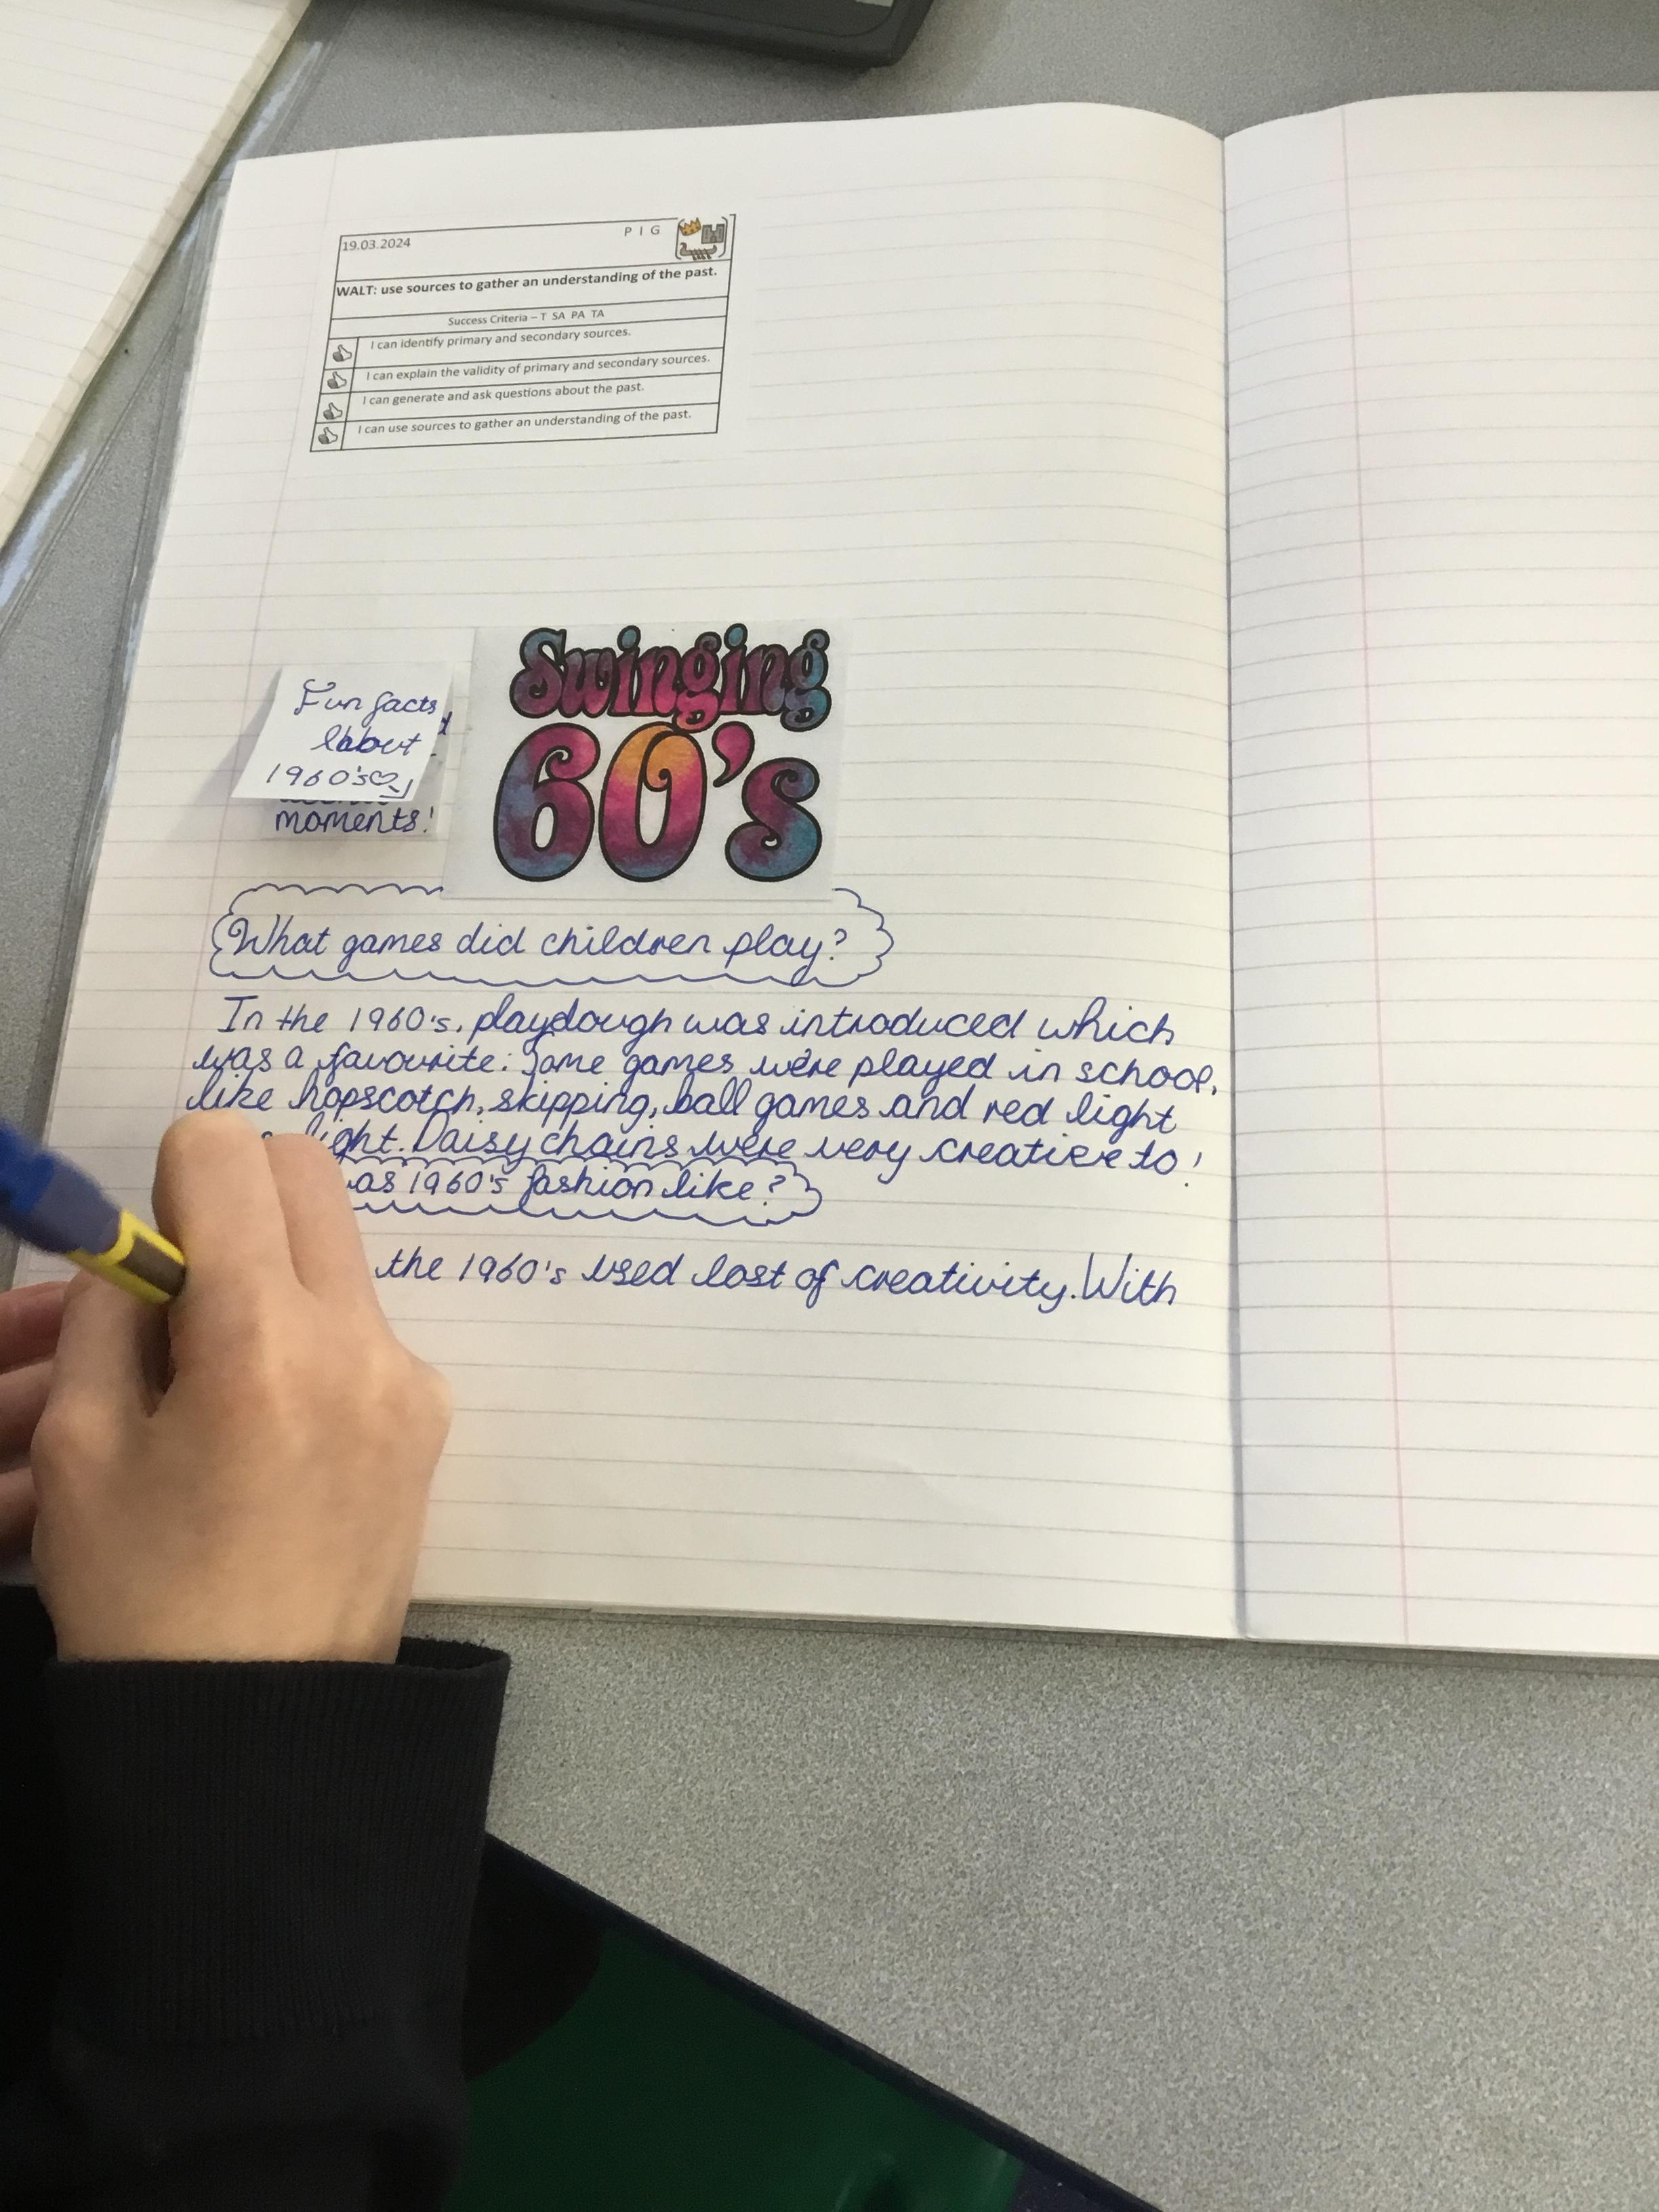 19.03.2024
P I G
WALT: use sources to gather an understanding of the past.
Success Criteria – T SA PA TA
I can identify primary and secondary sources.
I can explain the validity of primary and secondary sources.
I can generate and ask questions about the past.
I can use sources to gather an understanding of the past.
Swinging
60's
Fun facts
about
1960's
moments!
What games did children play?
In the 1960's, playdough was introduced which
was a favourite. Some games were played in school,
like hopscotch, skipping, ball games and red light
light. Daisy chains were very creative to!
as 1960's fashion like?
the 1960's used lost of creativity. With